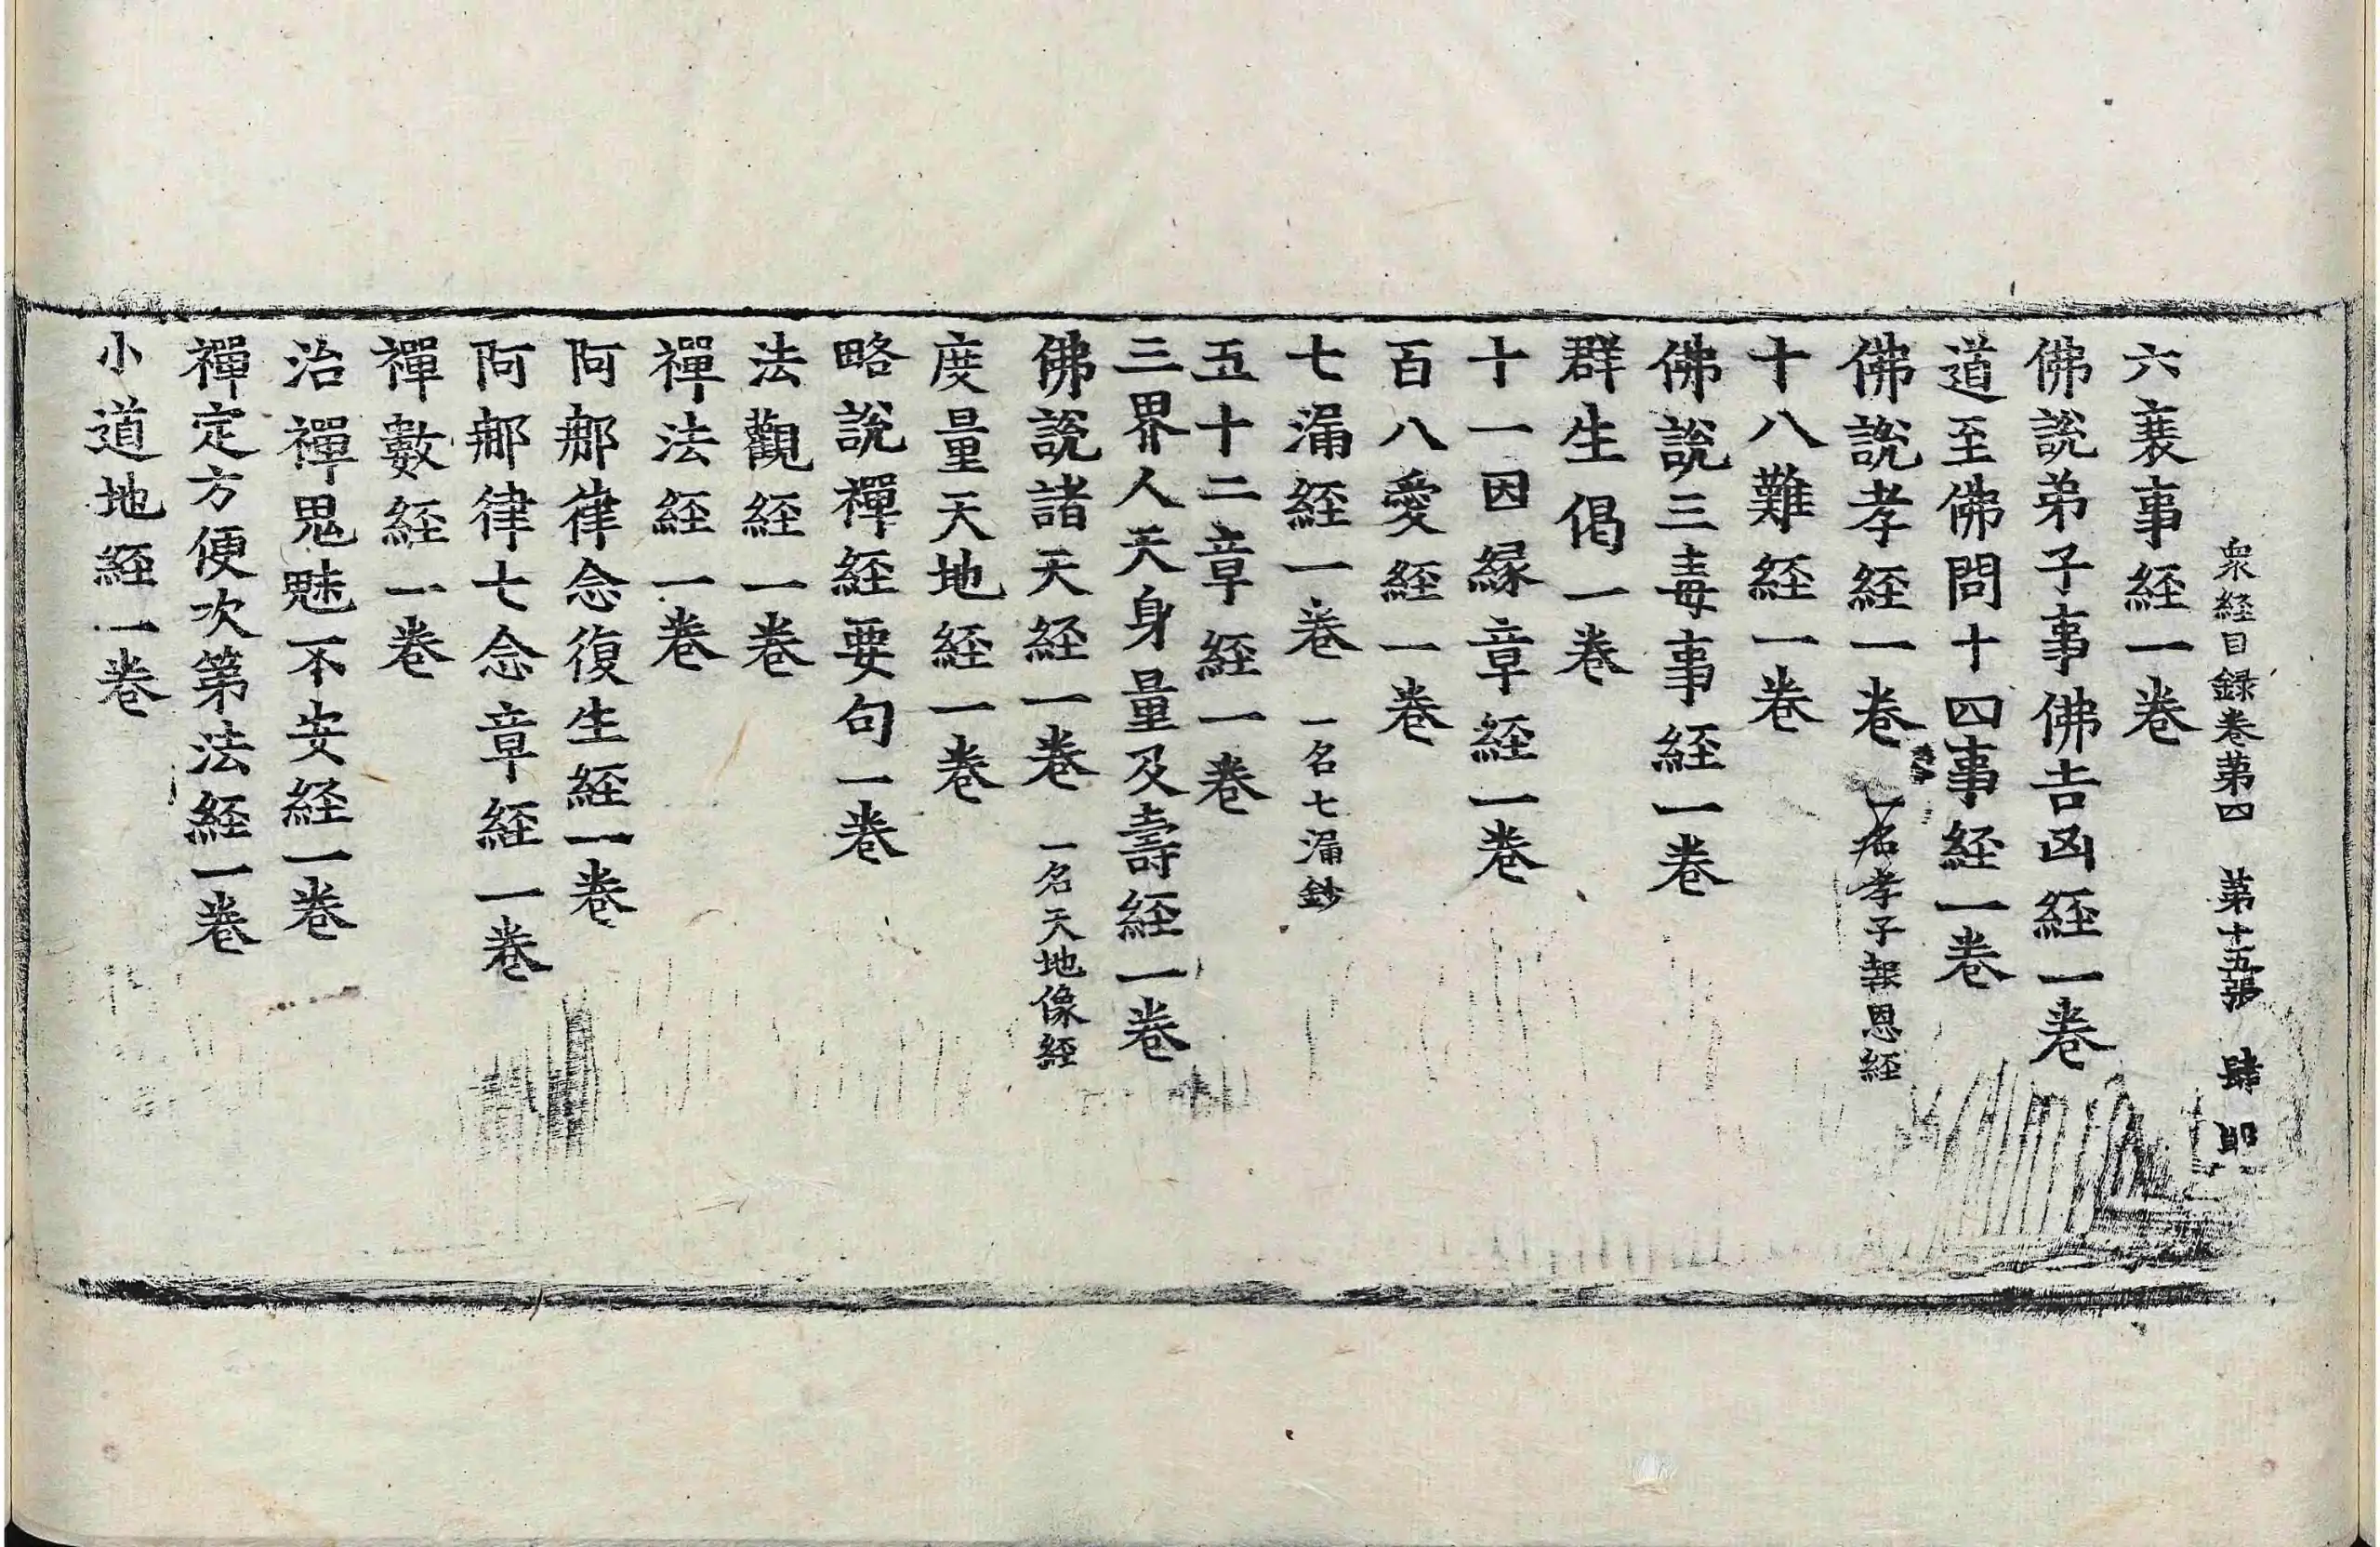 衆経目録卷第四 第十五張 肆
六衰事経一卷
佛說弟子事佛吉凶経一卷
道至佛問十四事経一卷
佛說孝経一卷 一名孝子報恩経
十八難経一卷
佛說三毒事経一卷
群生偈一卷
十一因緣章経一卷
百八愛経一卷
七漏経一卷 一名七漏鈔
五十二章経一卷
三界人天身量及壽経一卷
佛說諸天経一卷 一名天地像経
度量天地経一卷
略說禪経要句一卷
法觀経一卷
禪法経一卷
阿那律念復生経一卷
阿那律七念章経一卷
禪數経一卷
治禪鬼魅不安経一卷
禪定方便次第法経一卷
小道地経一卷